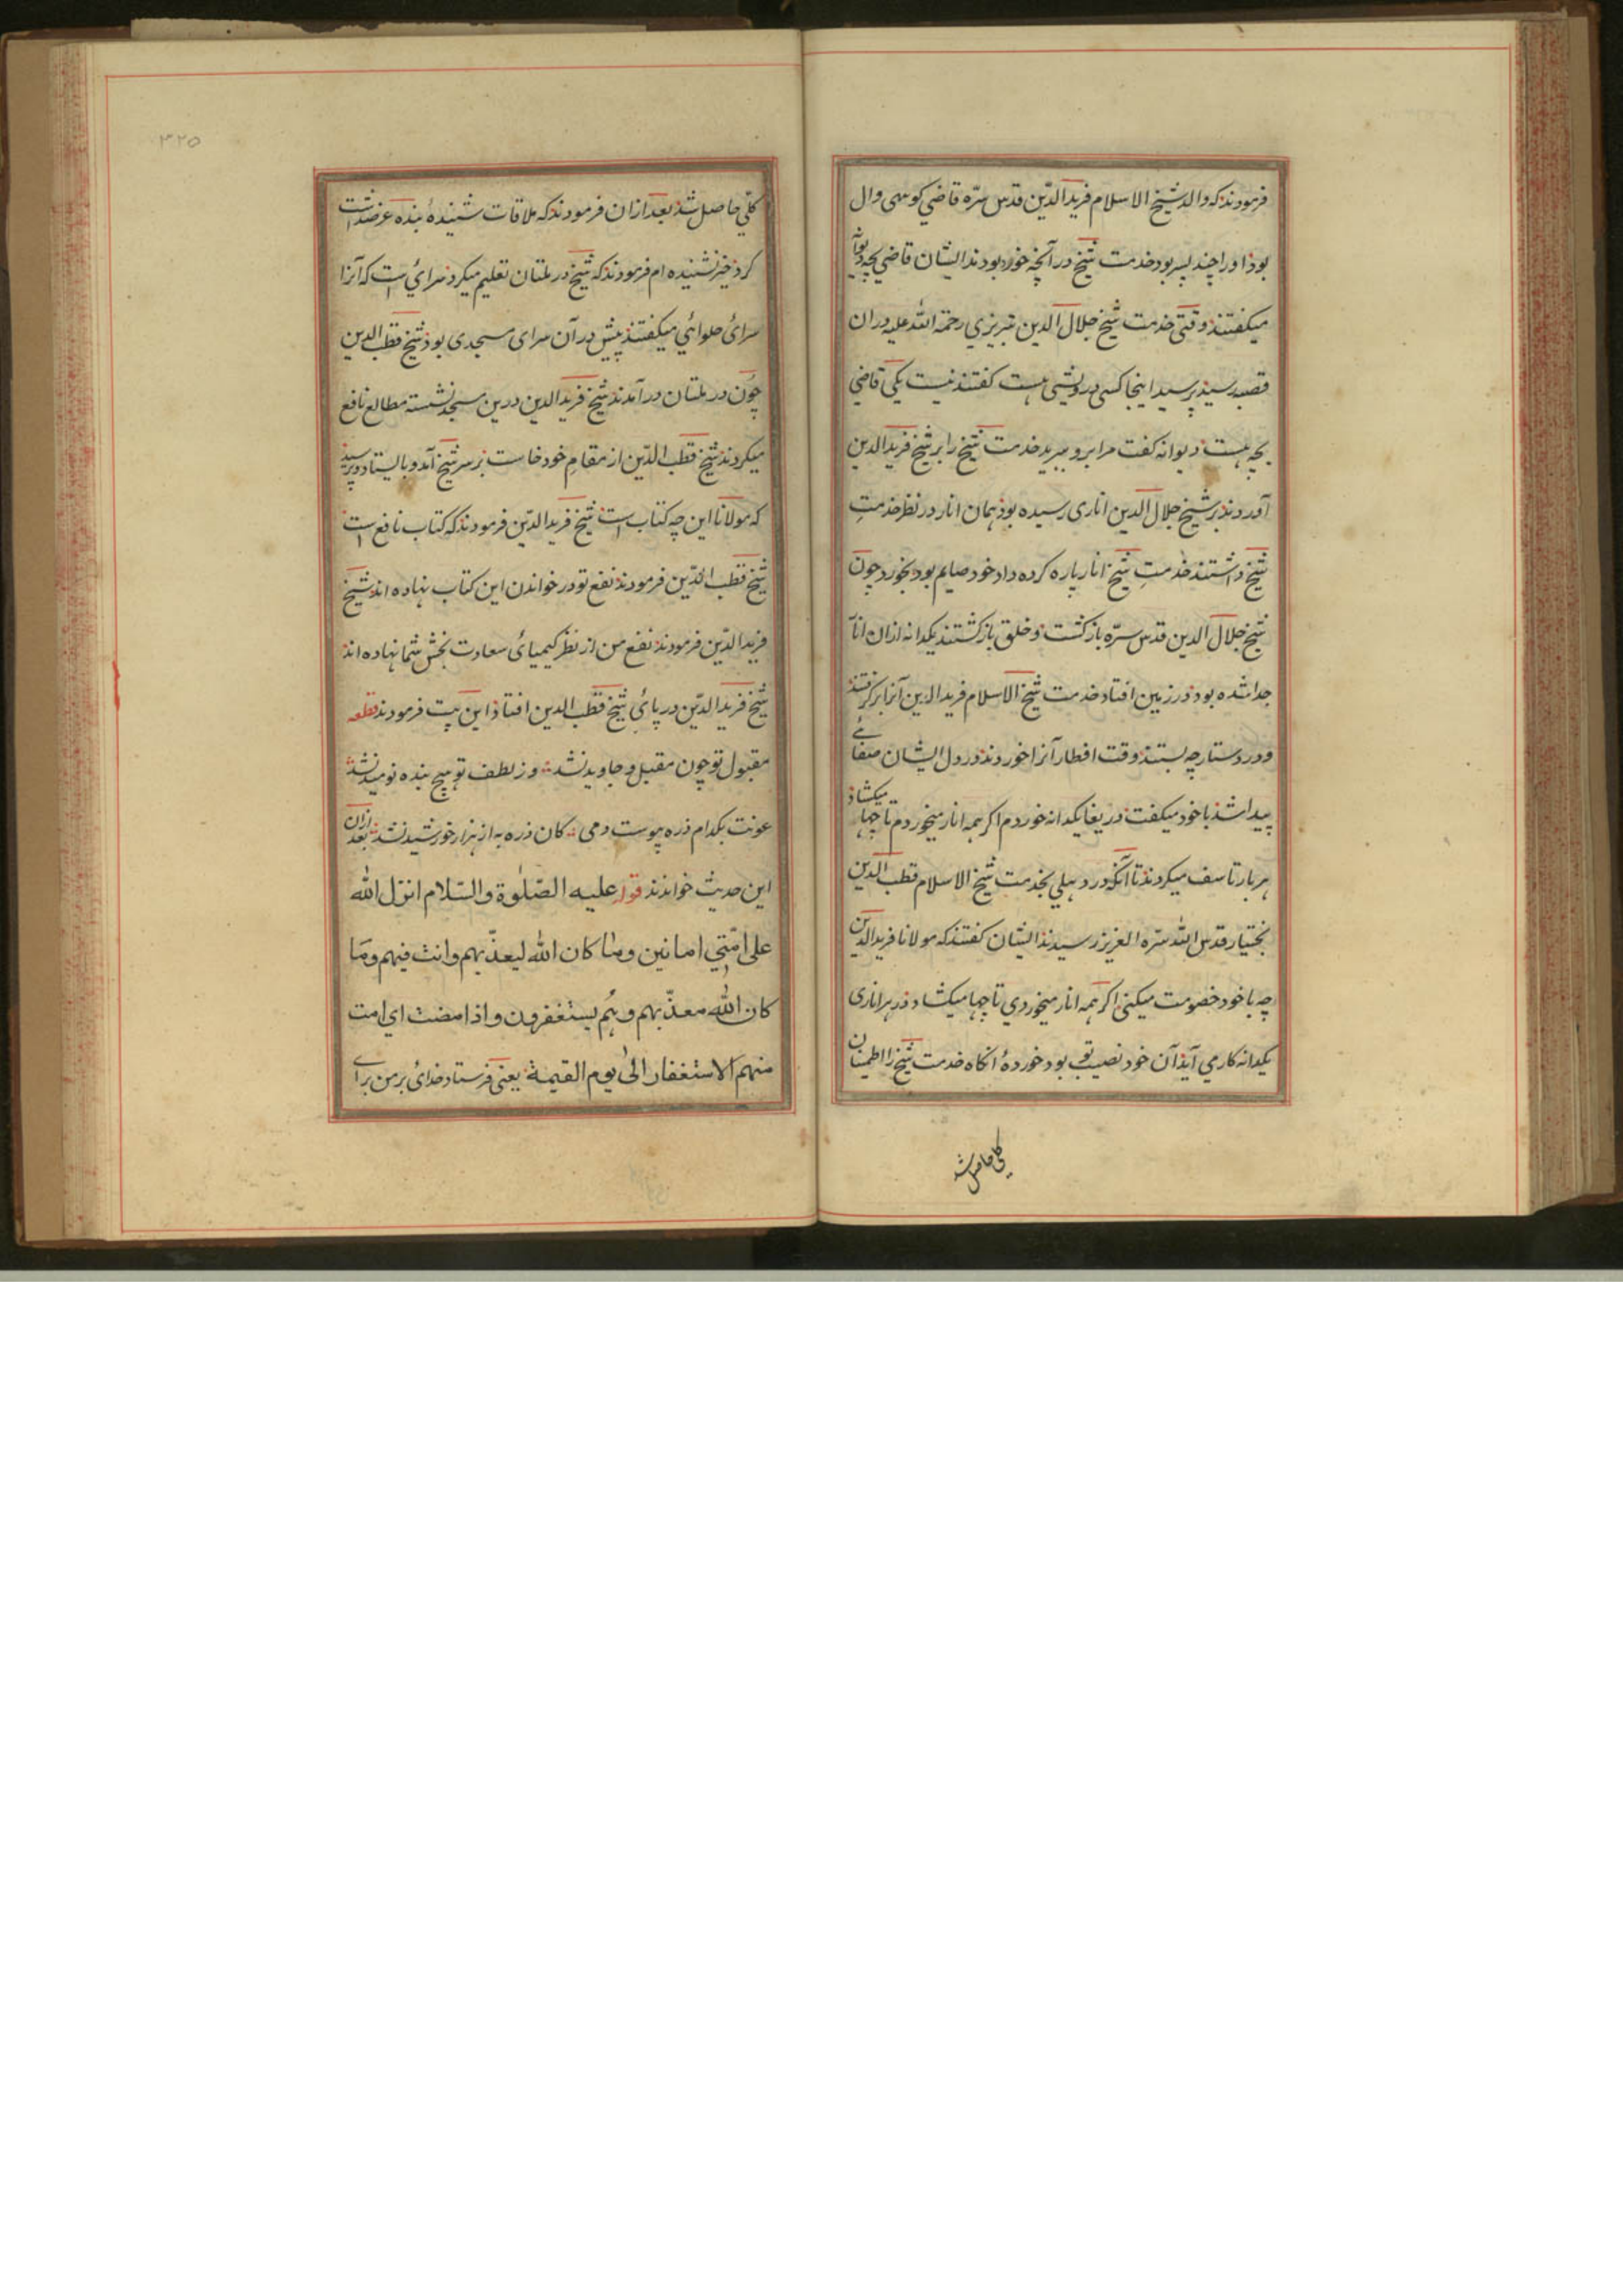 فرمودند که والد شیخ الاسلام فرید الدّین قدس سرّه قاضی کوسی وال
بود او را چند پسر بود خدمت شیخ در آنچه خورد بودند ایشان قاضی بچه دیوانه
میکفتند وقتی خدمت شیخ جلال الدین تبریزی رحمة الله علیه در ان
قصبه رسید پرسید اینجا کسی درویشی هست کفتند نیست یکی قاضی
بچه هست دیوانه کفت مرا برو ببرید خدمت شیخ را بر شیخ فرید الدین
آوردند بر شیخ جلال الدین اناری رسیده بود همان انار در نظر خدمتِ
شیخ داشتند خدمتِ شیخ انار پاره کرده داد خود صایم بود نخورد چون
شیخ جلال الدین قدس سرّه باز کشت و خلق باز کشتند یکدانه از ان انار
جدا شده بود در زمین افتاد خدمت شیخ الاسلام فرید الدین آنرا بر کرفتند
و در دستارچه بستند وقت افطار آنرا خوردند در دل ایشان صفائے
پیدا شد با خود میکفت دریغا یکدانه خوردم اکر همه انار میخوردم تا چها میکشاد
هر بار تاسف میکردند تا آنکه در دهلی بخدمت شیخ الاسلام قطب الدین
بختیار قدس الله سرّه العزیز رسیدند ایشان کفتند که مولانا فرید الدین
چه با خود خصومت میکنی اکر همه انار میخوردی تا چها میکشاد در هر اناری
یکدانه کار می آید آن خود نصیب تو بود خوردهٔ انکاه خدمت شیخ را اطمینان
کلی حاصل شد
۳۲۵
کلّی حاصل شد بعد از ان فرمودند که ملاقات شنیدهٔ بنده عرضداشت
کرد خیر نشنیده ام فرمودند که شیخ در ملتان تعلیم میکرد سرائی است که آنرا
سرای حلوائی میکفتند پیش در آن سرای مسجدی بود شیخ قطب الدین
چون در ملتان در آمدند شیخ فرید الدین درین مسجد نشسته مطالع نافع
میکردند شیخ قطب الدّین از مقام خود خاست بر سر شیخ آمد و بایستاد و پرسید
که مولانا این چه کتاب است شیخ فرید الدّین فرمودند که کتاب نافع است
شیخ قطب الدّین فرمودند نفع تو در خواندن این کتاب نهاده اند شیخ
فرید الدّین فرمودند نفع من از نظر کیمیائ سعادت بخش شما نهاده اند
شیخ فرید الدّین در پائ شیخ قطب الدین افتاد این بیت فرمودند قطعه
مقبول تو چون مقبل و جاوید نشد وز لطف تو هیچ بنده نومید نشد
عونت بکدام ذره پیوست دمی کان ذره به از هزار خورشید نشد بعد از ان
این حدیث خواندند قوله علیه الصّلوٰة والسّلام انزل الله
علی امّتی امانین وما کان الله لیعذّبهم وانت فیهم وما
کان الله معذّبهم وهم یستغفرون واذا مضت ای امت
منهم الاستغفار الی یوم القیمة یعنی فرستاد خدائ بر من برای